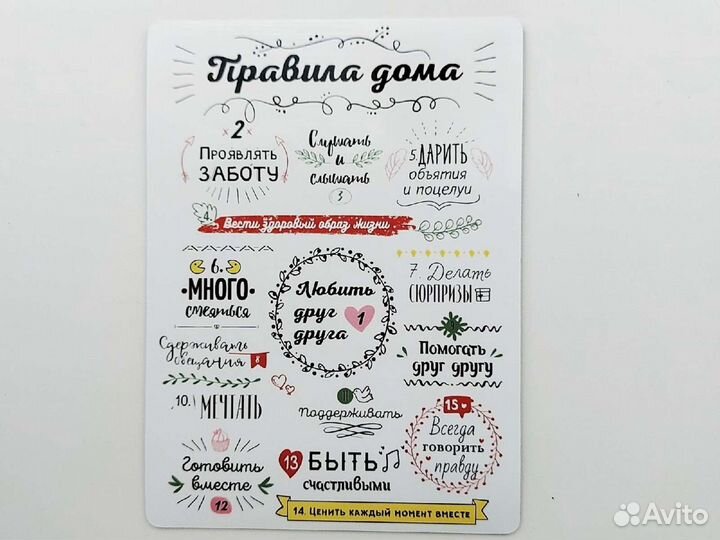 Правила дома
2
Проявлять
ЗАБОТУ
Слушать
и
слышать
3
5. ДАРИТЬ
объятия
и поцелуи
4. Вести здоровый образ жизни
6.
МНОГО
смеяться
Любить
друг
друга
1
7. Делать
СЮРПРИЗЫ
Сдерживать
обещания 8
9
Помогать
друг другу
10. МЕЧТАТЬ
11
Поддерживать
15
Всегда
говорить
правду
Готовить
вместе
12
13 БЫТЬ
счастливыми
14. Ценить каждый момент вместе
Avito